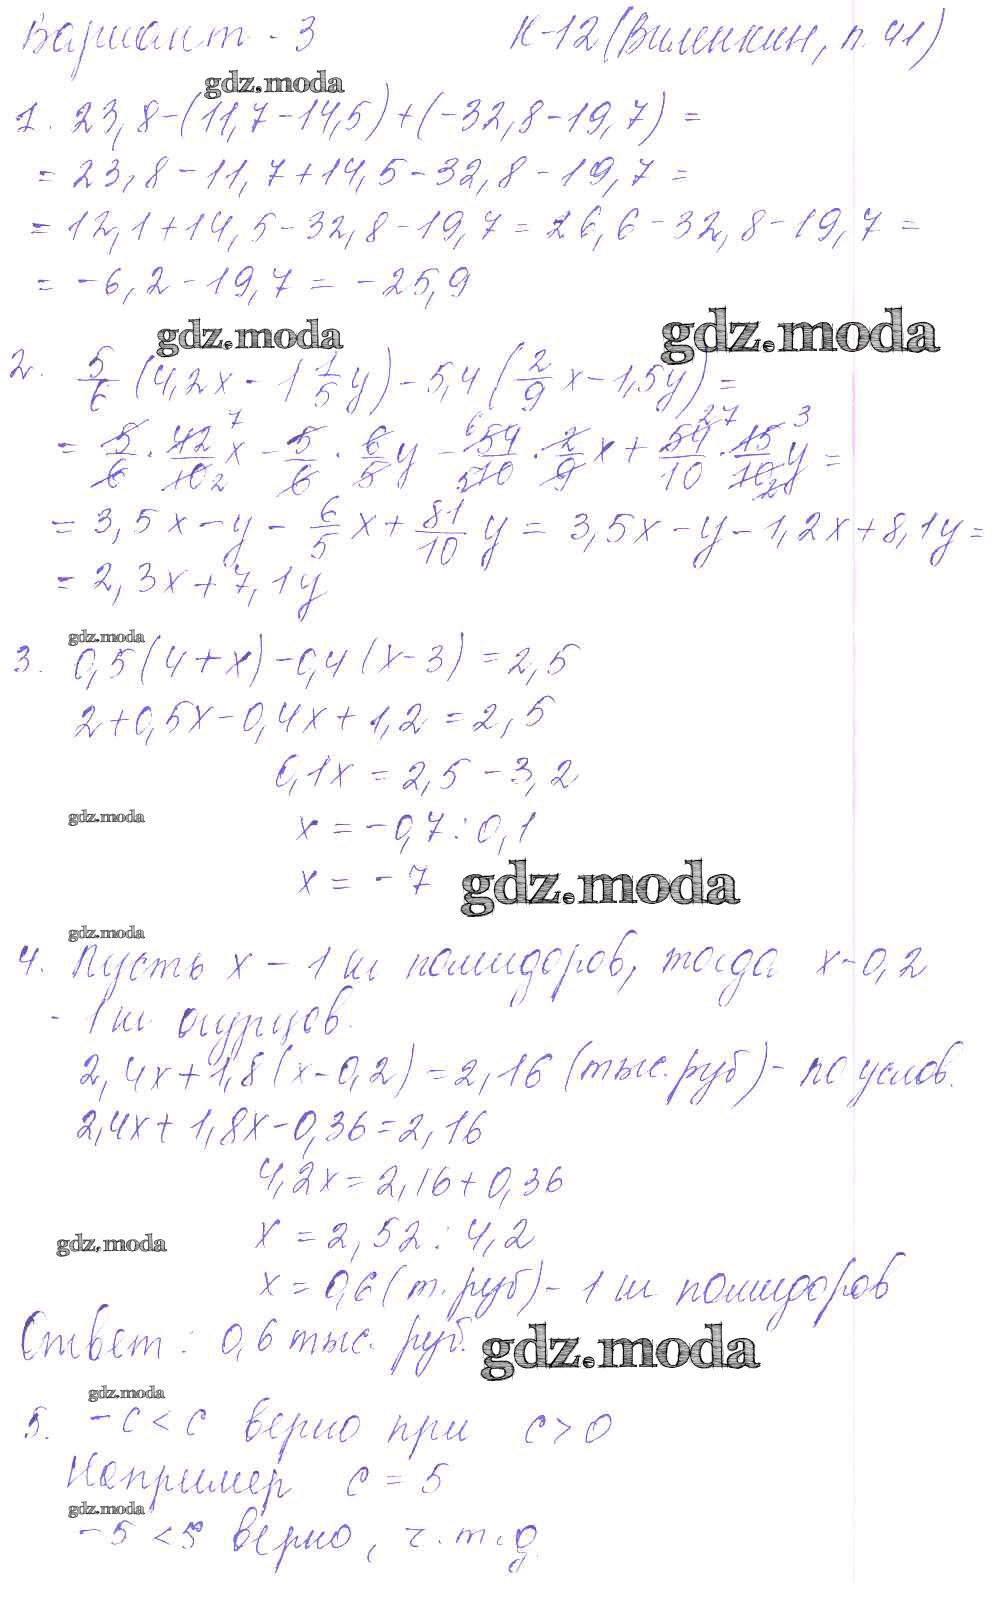 Вариант - 3 К-12 (Виленкин, п. 41)
gdz.moda
1. 23,8-(11,7-14,5)+(-32,8-19,7)=
=23,8-11,7+14,5-32,8-19,7=
=12,1+14,5-32,8-19,7=26,6-32,8-19,7=
=-6,2-19,7=-25,9
gdz.moda gdz.moda
2. 5/6 (4,2x - 1 1/5 y) - 5,4 (2/9 x - 1,5y) =
= 5/6 · 42/10 x - 5/6 · 6/5 y - 54/10 · 2/9 x + 54/10 · 15/10 y =
= 3,5x - y - 6/5 x + 81/10 y = 3,5x - y - 1,2x + 8,1y =
= 2,3x + 7,1y
gdz.moda
3. 0,5(4+x)-0,4(x-3)=2,5
2+0,5x-0,4x+1,2=2,5
0,1x=2,5-3,2
gdz.moda
x=-0,7:0,1
x=-7
gdz.moda
gdz.moda
4. Пусть x - 1 ш помидоров, тогда x-0,2
- 1 ш огурцов.
2,4x+1,8(x-0,2)=2,16 (тыс. руб) - по услов.
2,4x+1,8x-0,36=2,16
4,2x=2,16+0,36
gdz.moda
x=2,52:4,2
x=0,6 (т. руб) - 1 ш помидоров
Ответ: 0,6 тыс. руб.
gdz.moda
gdz.moda
5. -c<c верно при c>0
Например c=5
gdz.moda
-5<5 верно, ч.т.д.